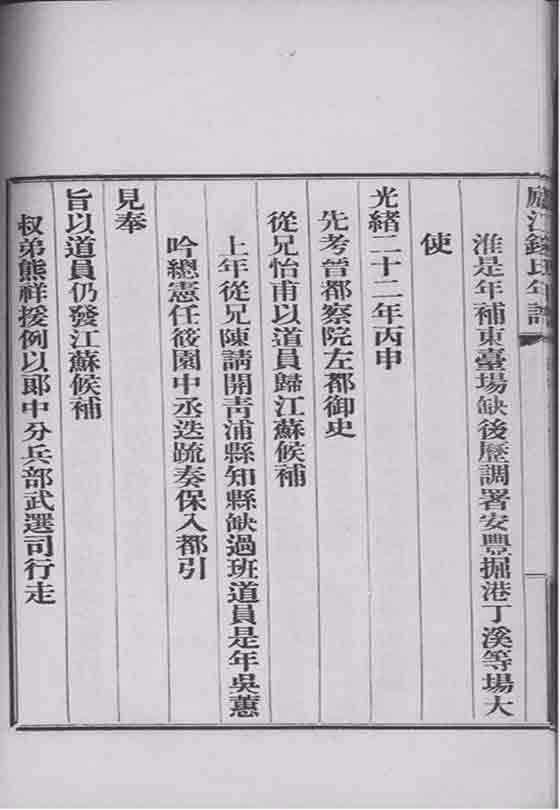 廬江錢氏年譜
淮是年補東臺場缺後歷調署安豐掘港丁溪等場大
使
光緒二十二年丙申
先考晉都察院左都御史
從兄怡甫以道員歸江蘇候補
上年從兄陳請開青浦縣知縣缺過班道員是年吳蕙
吟總憲任筱園中丞迭疏奏保入都引
見奉
旨以道員仍發江蘇候補
叔弟熊祥援例以郎中分兵部武選司行走